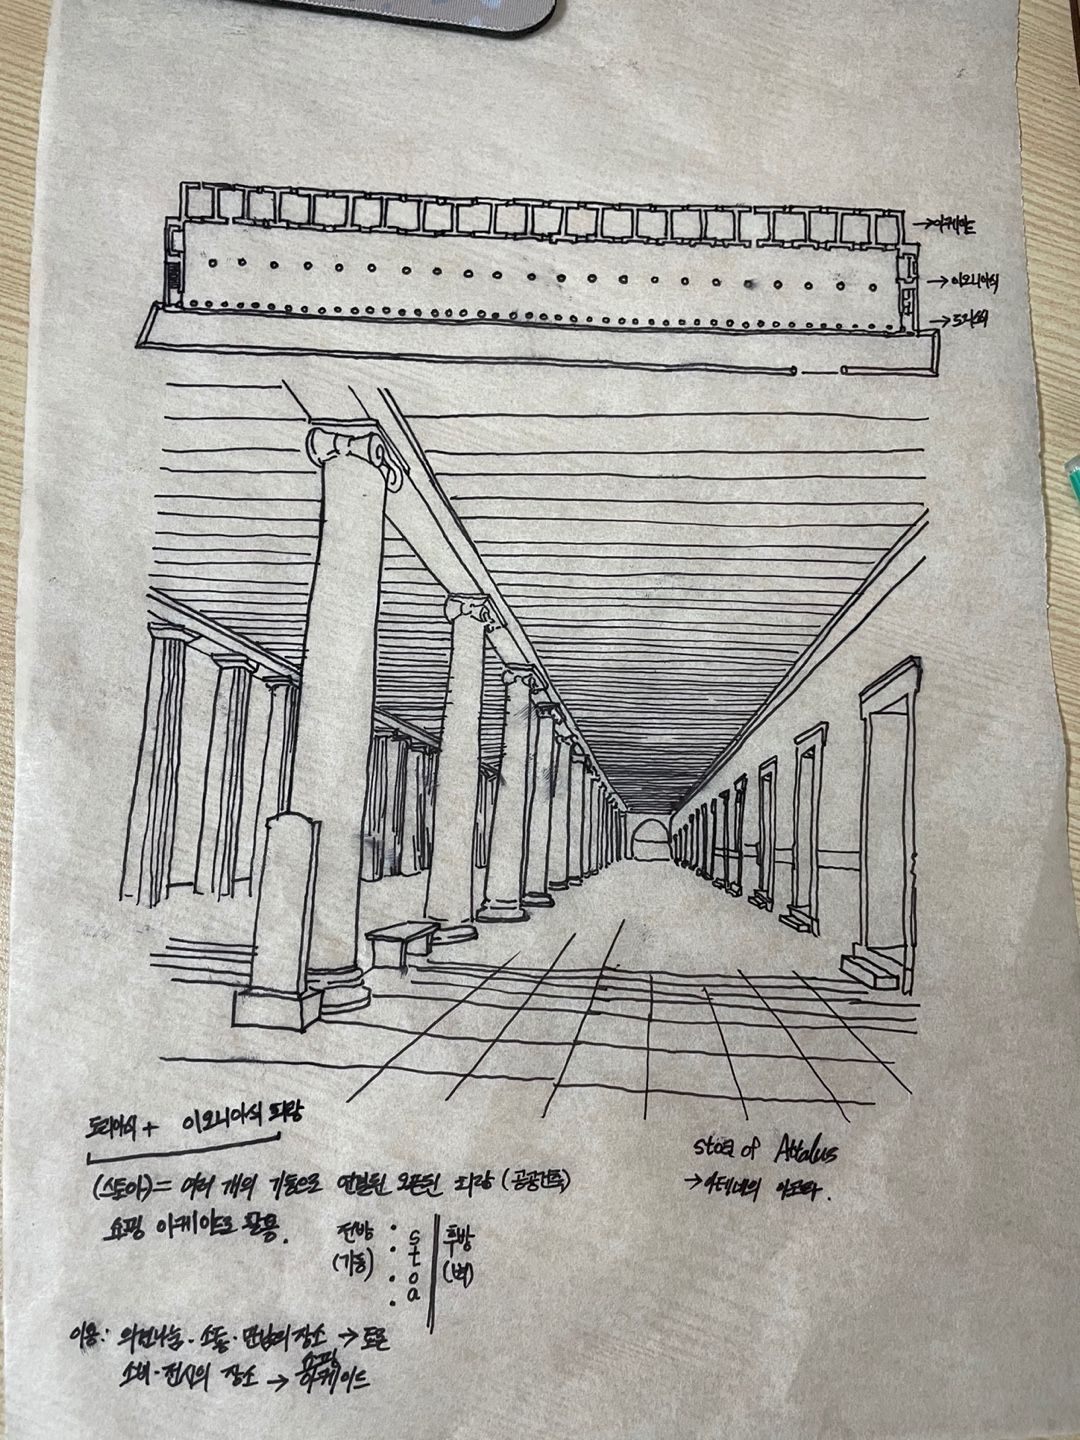 →아케이드
→이오니아식
→도리아식
도리아식 + 이오니아식 회랑
(스토아)= 여러 개의 기둥으로 연결된 오픈된 회랑 (공공건축)
쇼핑 아케이드로 활용.
전방
(기둥)
stoa
후방
(벽)
이용: 의견나눔·소통·만남의 장소 → 토론
소비·전시의 장소 → 쇼핑
아케이드
stoa of Attalus
→아테네의 아고라.